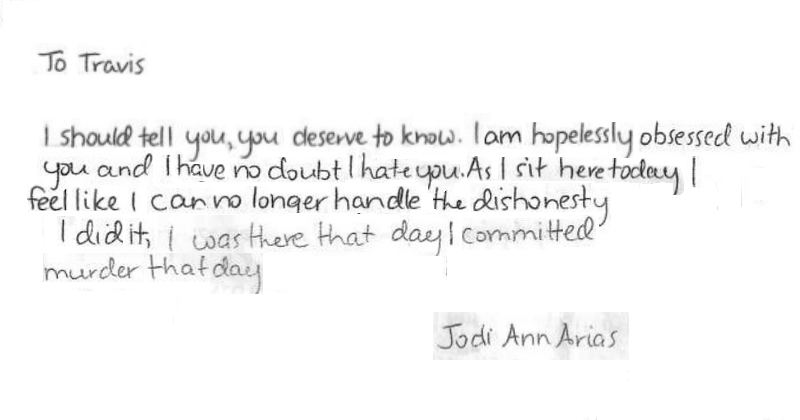 To Travis
I should tell you, you deserve to know. I am hopelessly obsessed with
you and I have no doubt I hate you. As I sit here today I
feel like I can no longer handle the dishonesty
I did it, I was there that day I committed
murder that day
Jodi Ann Arias